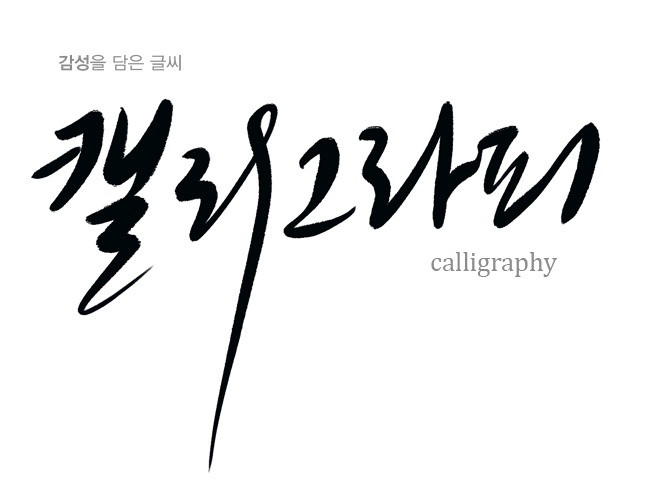 감성을 담은 글씨
캘리그라피
calligraphy